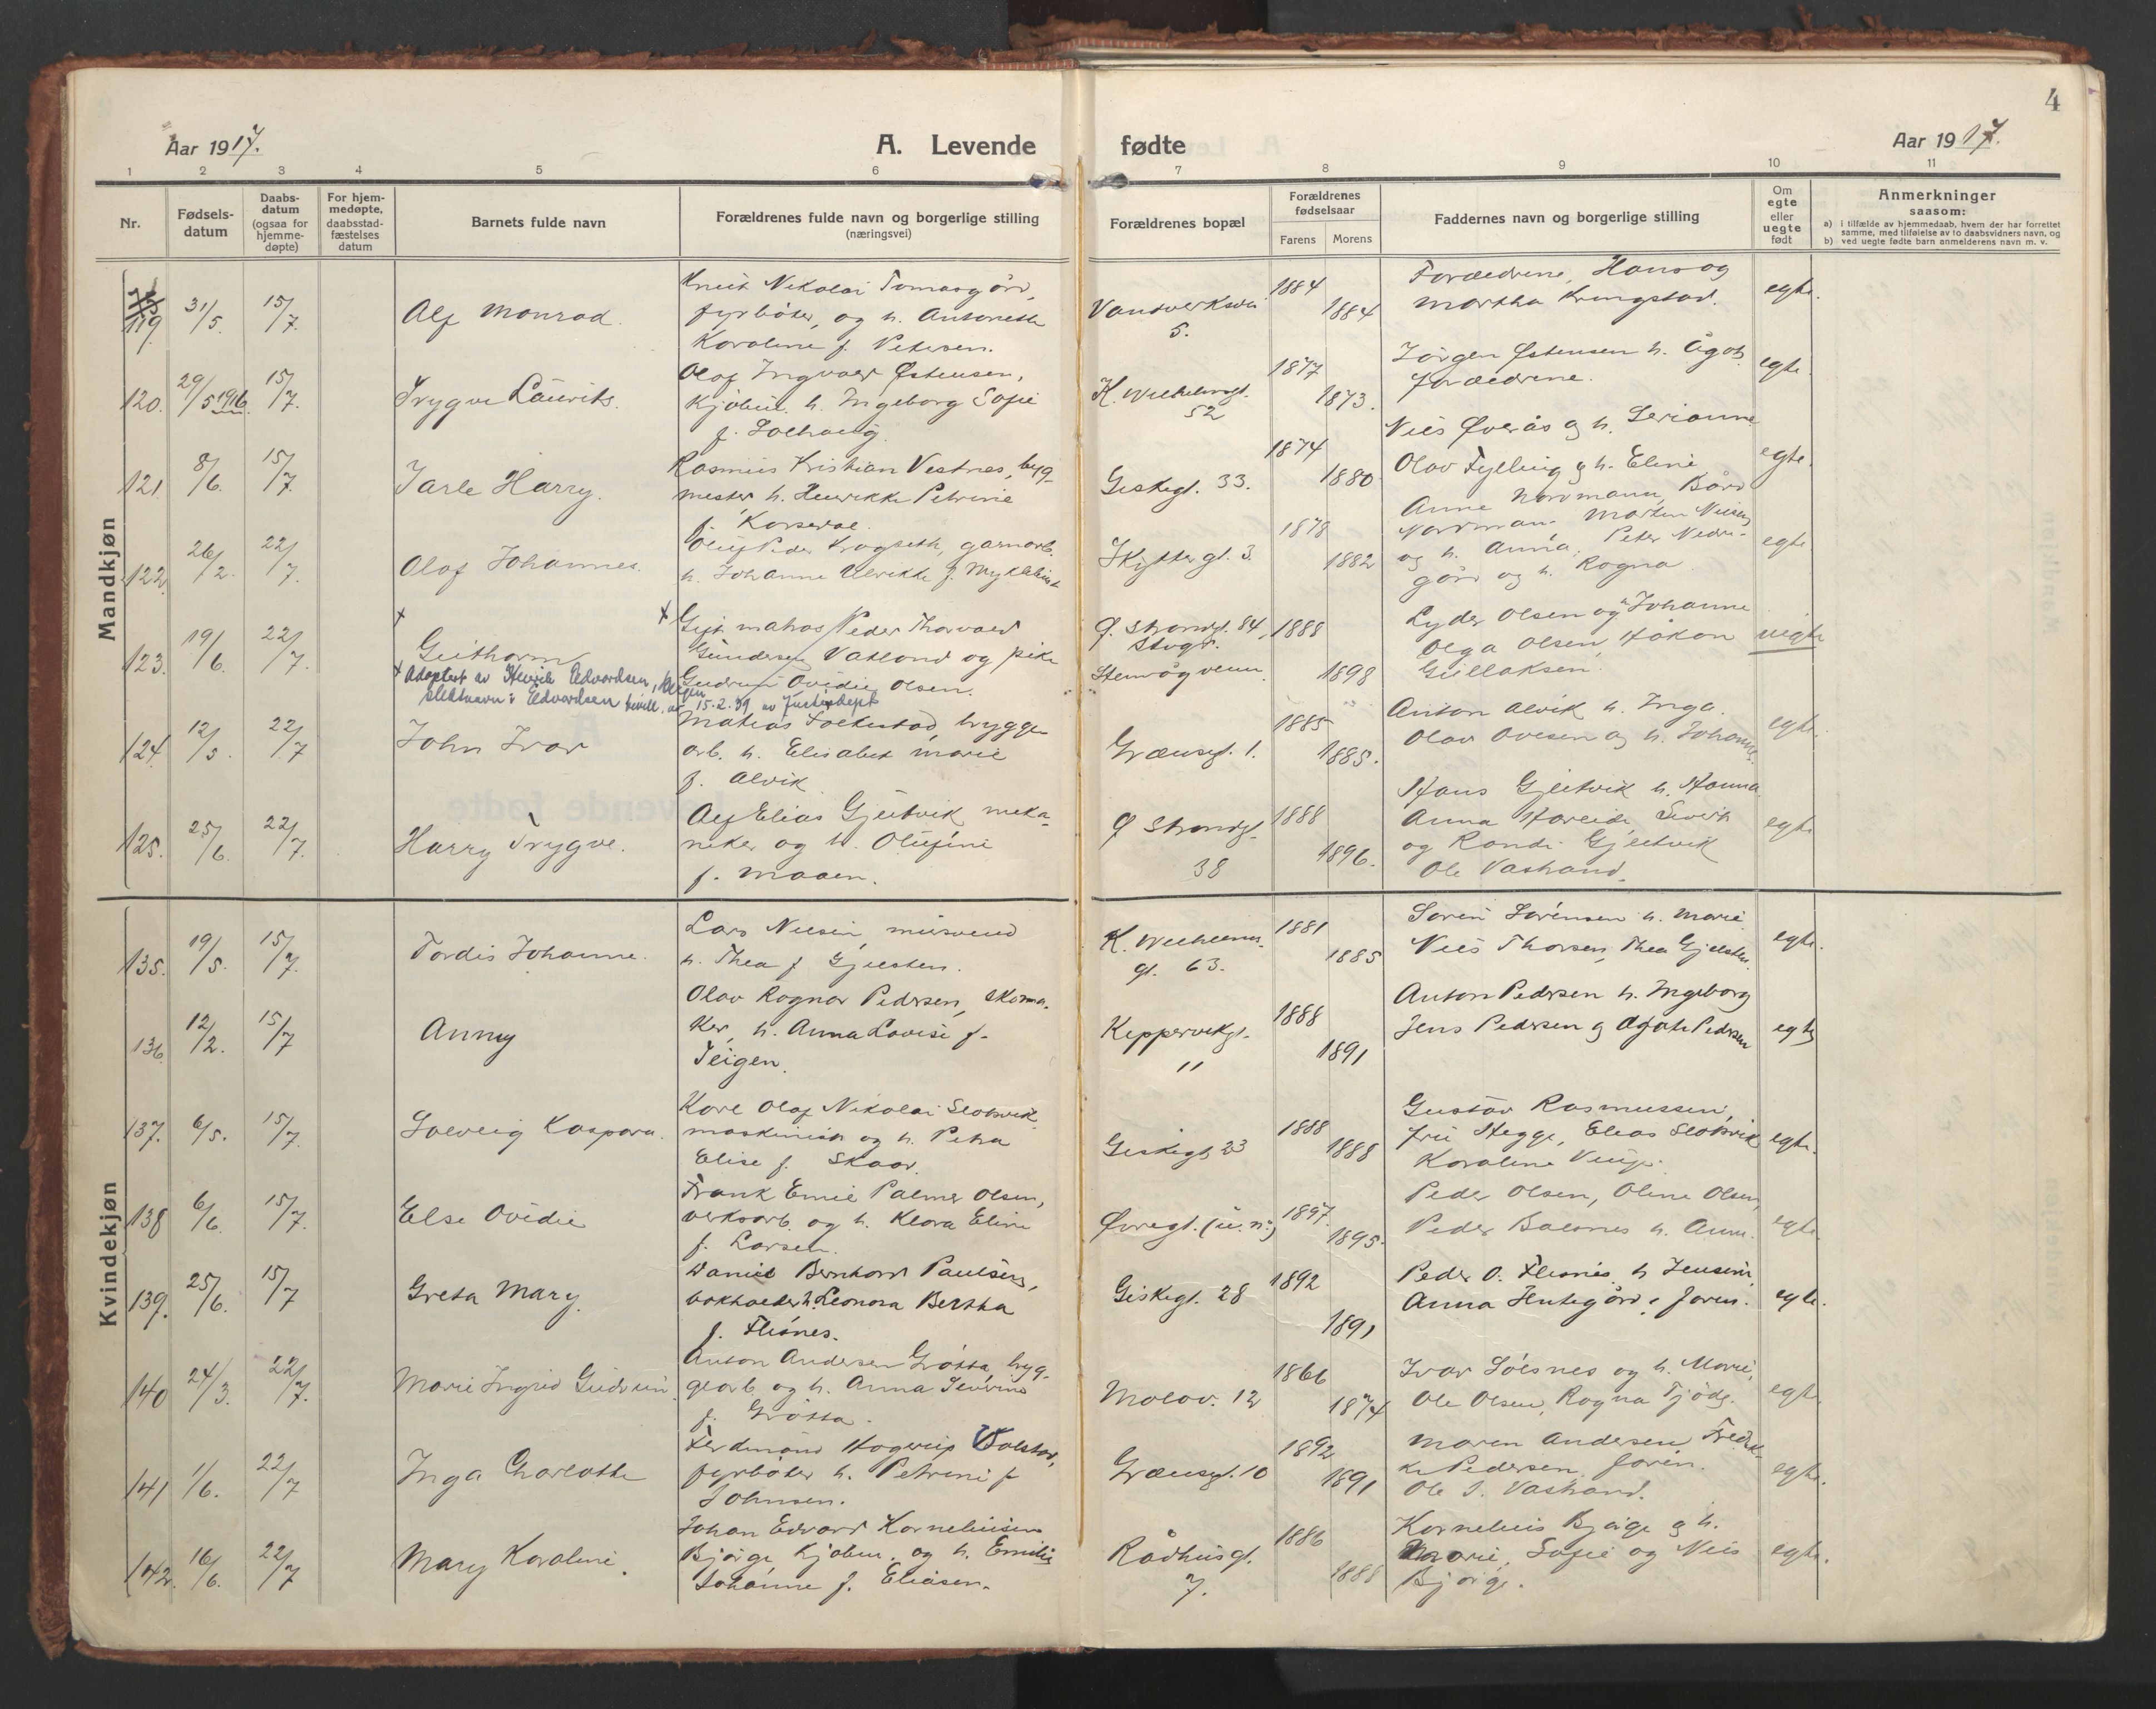 4
Aar 1917.
A. Levende fødte
Aar 1917.
1 2 3 4 5 6 7 8 9 10 11
Nr.
Fødsels-
datum
Daabs-
datum
(ogsaa for
hjemme-
døpte)
For hjem-
medøpte,
daabsstad-
fæstelses
datum
Barnets fulde navn
Forældrenes fulde navn og borgerlige stilling
(næringsvei)
Forældrenes bopæl
Forældrenes
fødselsaar
Farens Morens
Faddernes navn og borgerlige stilling
Om
egte
eller
uegte
født
Anmerkninger
saasom:
a) i tilfælde av hjemmedaab, hvem der har forrettet
samme, med tilføielse av to daabsvidners navn, og
b) ved uegte fødte barn anmelderens navn m. v.
Mandkjøn
119 31/5. 15/7. Alf Monrad.
Knut Nikolai Tomasgård,
fyrbøter, og h. Antonette
Karoline f. Petersen.
Vandverksvei
5.
1884 1884
Forældrene, Hans og
Martha Kringstad.
egte.
120. 29/5 1916. 15/7. Trygve Laurits.
Olaf Ingvald Østensen,
Kjøbm. h. Ingeborg Sofie
f. Solhaug.
K. Wilhelmsgt.
52
1877 1873.
Jørgen Østensen h. Ågot
forældrene.
egte.
121. 8/6. 15/7. Jarle Harry.
Rasmus Kristian Vestnes, byg-
mester h. Henrikke Petrine
f. Korsedal.
Giskegt. 33.
1874 1880
Nils Øverås og h. Serianne
Olav Fylling og h. Eline
egte.
122. 26/2. 22/7. Olaf Johannes.
Oluf Peder Krogseth, garnarb.
h. Johanne Ulrikke f. Myklebust
Skyttergt. 3.
1878 1882
Anne Nordmann, Bård
Nordman. Morten Nilsen
og h. Anna, Peter Nedre-
gård og h. Ragna
egte.
123. 19/6. 22/7. x Guthorm
x Gift matros Peder Thorvald
Gundersen Vatland og pike
Gudrun Ovidie Olsen.
x Adoptert av Henrik Edvardsen, Bergen
slektsnavn: Edvardsen bevill. av 15.2.39 av Justisdept
Ø. Strandgt. 84,
Stvgr.
Stenvågveien
1888 1898
Lyder Olsen og h Johanne
Olga Olsen, Håkon
Gullaksen.
uegte
124. 12/5. 22/7 John Ivar
Matias Solkestad, brygge
arb. h. Elisabet Marie
f. Alvik
Grænsegt. 1.
1885 1885.
Anton Alvik h. Inga.
Olav Ovesen og h. Johanne.
egte.
125. 25/6. 22/7. Harry Trygve.
Alf Elias Gjeitvik meka-
niker og h. Olufine
f. Maaen.
Ø Strandgt.
38
1888 1896.
Hans Gjeitvik h. Hanna.
Anna Hareide, Sivert
og Randi Gjeitvik
Ole Vastrand.
egte
Kvindekjøn
135. 19/5. 15/7. Tordis Johanne.
Lars Nilsen, mursvend
h. Thea f Gjelsten.
K. Wilhelms-
gt. 63.
1881 1885
Søren Sørensen h. Marie.
Nils Thorsen, Thea Gjelsten.
egte.
136. 12/2. 15/7 Anny
Olav Ragnar Pedersen, skoma-
ker, h. Anna Lovise f.
Teigen.
Kippervikgt.
11
1888 1891
Anton Pedersen h. Ingeborg
Jens Pedersen og Agate Pedersen
egte
137. 6/5. 15/7. Solveig Kaspara.
Karl Olaf Nikolai Slotsvik
maskinist og h. Petra
Elise f. Skaar.
Giskegt 23
1888 1888
Gustav Rasmussen,
fru Hegge, Elias Slotsvik
Karoline
egte.
138 6/6. 15/7. Else Ovidie
Frank Emil Palmer Olsen,
verksarb. og h. Klara Eline
f. Larsen.
Øvregt. (u. n:)
1897. 1895.
Peder Olsen, Oline Olsen,
Peder Balsnes h. Anna.
egte.
139. 25/6. 15/7 Greta Mary.
Daniel Bernhard Paulsen,
bokholder h. Leonora Bertha
f. Flisnes.
Giskegt. 28
1892 1891
Peder O. Flisnes h Jensine,
Anna Hutegård, foren.
egte.
140 24/3. 22/7. Marie Ingrid Gudrun
Anton Andersen Grøtta, bryg-
gearb. og h. Anna Severine
f. Grøtta.
Molov. 12
1866 1874
Ivar Solsnes og h. Marie,
Ole Olsen, Ragna Fjöds.
egte.
141 1/6. 22/7 Inga Charlotte
Ferdinand Hagerup Volstad,
fyrbøter h. Petrine f
Johnsen.
Grænsegt. 10
1892 1891
Maren Andersen, Fredrik-
ke Pedersen, foren.
Ole S. Vastrand.
egte.
142. 16/6. 22/7 Mary Karoline.
Johan Edvard Korneliusen
Bjørge, Kjøbm. og h. Emilie
Johanne f. Eliasen.
Rådhusgt.
7.
1886 1888
Kornelius Bjørge og h.
Marie, Sofie og Nils
Bjørge.
egte.